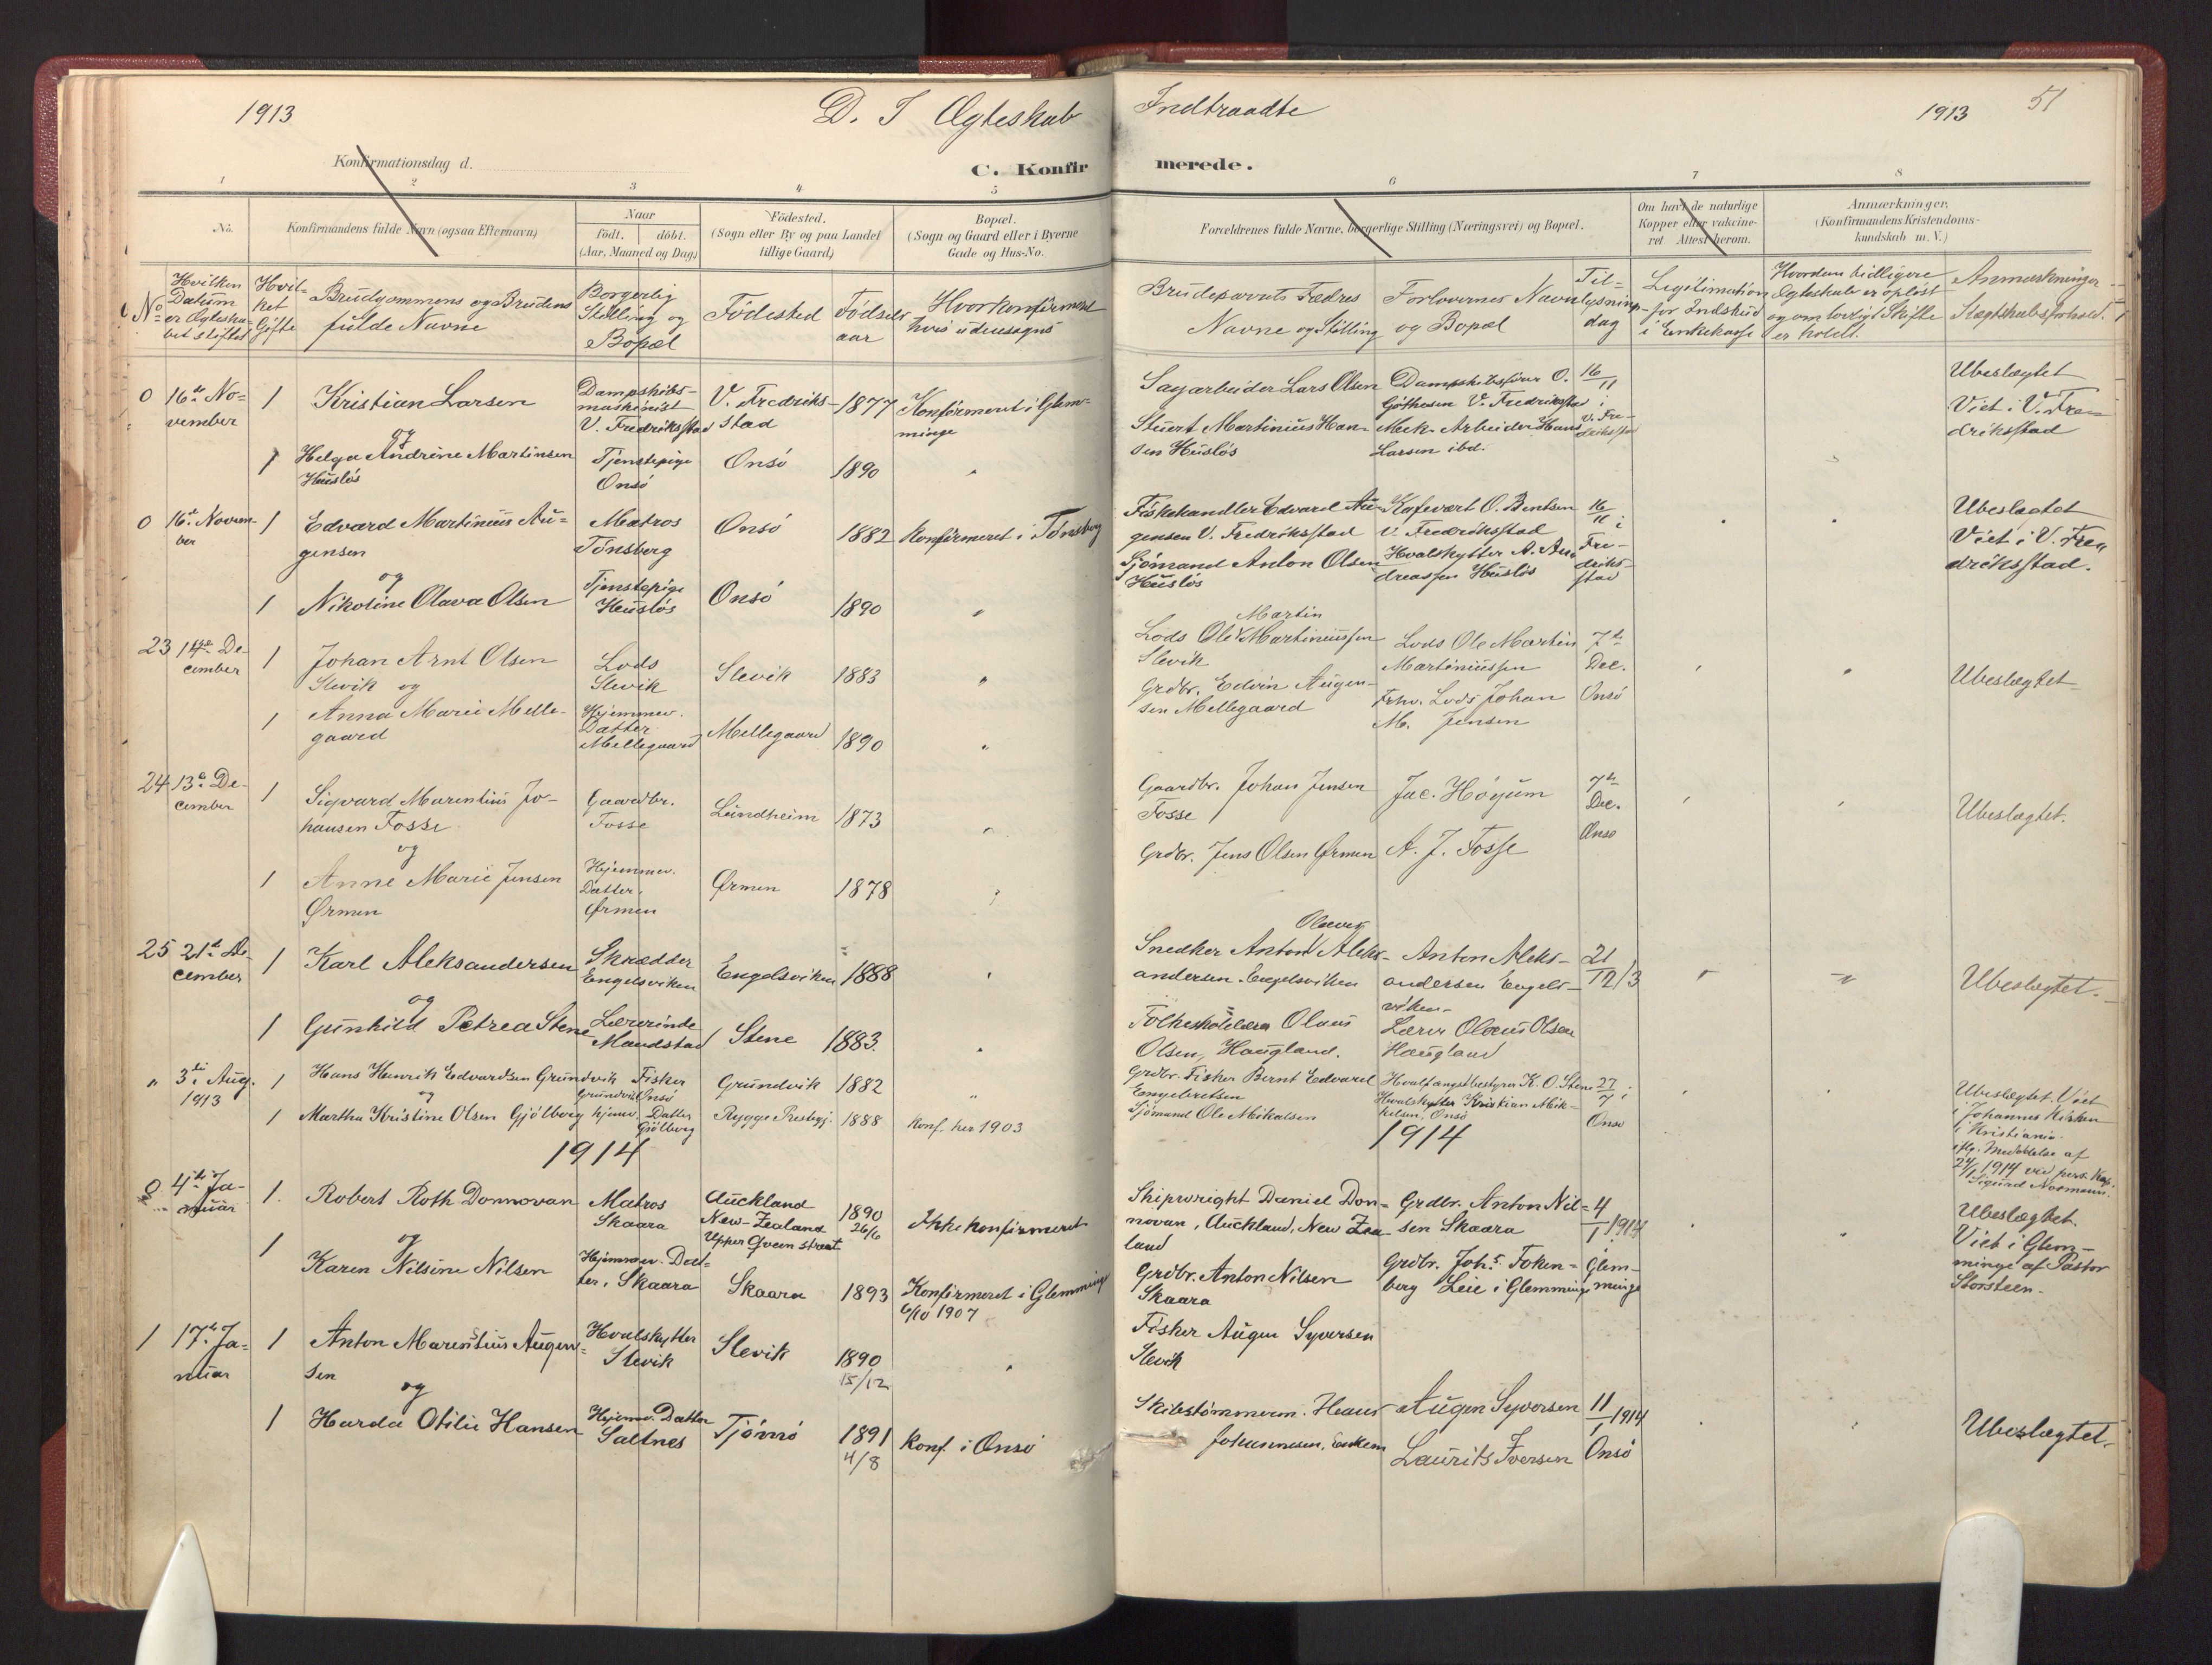 1913
D. I Ægteskab Indtraadte
1913
51
Konfirmationsdag d.
C. Konfirmerede.
1 2 3 4 5 6 7 8
No.
Konfirmandens fulde Navn (ogsaa Efternavn)
Naar
født. döbt.
(Aar, Maaned og Dag)
Födested.
(Sogn eller By og paa Landet
tillige Gaard)
Bopæl.
(Sogn og Gaard eller i Byerne
Gade og Hus-No.
Forældrenes fulde Navne, borgerlige Stilling (Næringsvei) og Bopæl.
Om havt de naturlige
Kopper eller vakcine-
ret. Attest herom.
Anmærkninger.
(Konfirmandens Kristendoms-
kundskab m. V.)
No
Hvilken
Datum
er Ægteska-
bet stiftet
Hvil-
ket
Gifte
Brudgommens og Brudens
fulde Navne
Borgerlig
Stilling og
Bopæl
Födested
Födsels
aar
Hvor konfirmeret
hvis udensogns
Brudeparrets Fædres
Navne og Stilling
Forlovernes Navn
og Bopæl
Til-
lysnings-
dag
Legitimation
for Indskud
i Enkekasse
Hvordan tidligere
Ægteskab er opløst
og om lovligt Skifte
er holdt.
Anmærkninger
Slægtskabsforhold.
0 16de No-
vember
1 Kristian Larsen
og
Dampskibs-
maskinist
V. Fredriksstad
V. Fredriks-
stad
1877
Konfirmeret i Glem-
minge
Sagarbeider Lars Olsen
Dampskibsfører O.
Gøthesen V. Fredriksstad
16/11 i
V. Fre-
driksstad
Ubeslægtet
Viet i V. Fre-
driksstad
1 Helga Andrine Martinsen
Huslös
Tjenstepige
Onsö
Onsö
1890
"
Stuert Martinius Han-
sen Huslös
Mek. Arbeider Hans
Larsen ibd.
0 16de Novem-
ber
1 Edvard Martinius Au-
gensen
og
Matros
Tönsberg
Onsö
1882
Konfirmeret i Tönsberg
Fiskehandler Edvard Au-
gensen V. Fredriksstad
Kafevært O. Bentsen
V. Fredriksstad
16/11 i
Fre-
driks-
stad
Ubeslægtet
Viet i V. Fre-
driksstad.
1 Nikoline Olava Olsen
Tjenstepige
Huslös
Onsö
1890
"
Sjömand Anton Olsen
Huslös
Hvalskytter A. An-
dreassen Huslös
23 14de De-
cember
1 Johan Arnt Olsen
Slevik og
Lods
Slevik
Slevik
1883
"
Martin
Lods Ole Martiniussen
Slevik
Lods Ole Martin
Martiniussen
7de
Dec.
Onsö
Ubeslægtet
1 Anna Marie Melle-
gaard
Hjemmev.
Datter
Mellegaard
Mellegaard
1890
"
Grdbr. Edvin Augen-
sen Mellegaard
Frhv. Lods Johan
M. Jensen
24 13de De-
cember
1 Sigvard Marentius Jo-
hansen Fosse
og
Gaardbr.
Fosse
Lundheim
1873
"
Gaardbr. Johan Jensen
Fosse
Jac. Höyum
7de
Dec.
Onsö
Ubeslægtet.
1 Anne Marie Jensen
Ørmen
Hjemmev.
Datter.
Ørmen
Ørmen
1878
"
Grdbr. Jens Olsen Ørmen
A. J. Fosse
25 21de De-
cember
1 Karl Aleksandersen
og
Skrædder
Engelsviken
Engelsviken
1888
"
Snedker Anton Aleks-
andersen. Engelsviken
Anton Aleks-
andersen Engels-
viken.
21/12 13
Ubeslægtet.
1 Gunhild Petrea Stene
Lærerinde
Maudstad
Stene
1883.
"
Folkeskolelærer Olaus
Olsen, Haugland.
Lærer Olaus Olsen
Haugland
" 3die Aug.
1913
1 Hans Henrik Edvardsen Grundvik
og
Fisker
Grundvik Onsö
Grundvik
1882
"
Grdbr. Fisker Bernt Edvard
Engebretsen
Hvalfangstbestyrer K. O. Stene
27/7 i
Onsö
Ubeslægtet. Viet
i Johannes Kirken
i Kristiania
iflg. Meddelelse af
24/1 1914 ved pers. Kap.
Sigurd Normann.
1 Martha Kristine Olsen Gjölberg
hjemv. Datter
Gjölberg
Rygge Prestegj.
1888
Konf. her 1903
Sjömand Ole Mikalsen
Hvalskytter Kristian Mik-
kelsen, Onsö
1914
1914
0 4de Ja-
nuar
1. Robert Roth Donnovan
og
Matros
Skaara
Auckland
New-Zealand
Upper Qveen street
1890
26/6
Ikke konfirmeret
Shipwright Daniel Don-
novan, Auckland, New Zea-
land
Grdbr. Anton Nil-
sen Skaara
4/1 1914
Glem-
minge
Ubeslægtet.
Viet i Glem-
minge af Pastor
Storsteen.
1 Karen Nilsine Nilsen
Hjemmev. Dat-
ter, Skaara
Skaara
1893
Konfirmeret i Glemminge
6/10 1907
Grdbr. Anton Nilsen
Skaara
Grdbr. Johs. Foken-
berg Leie i Glemminge
1 17de Ja-
nuar
1 Anton Marentius Augen-
sen
og
Hvalskytter
Slevik
Slevik
1890
15/12
"
Fisker Augen Syversen
Slevik
Augen Syversen
11/1 1914
Onsö
Ubeslægtet.
1 Harda Otilie Hansen
Hjemv. Datter
Saltnes
Tjömö
1891
4/8
Konf. i Onsö
Skibstömmerm. Hans
Johannesen,
Laurits Iversen